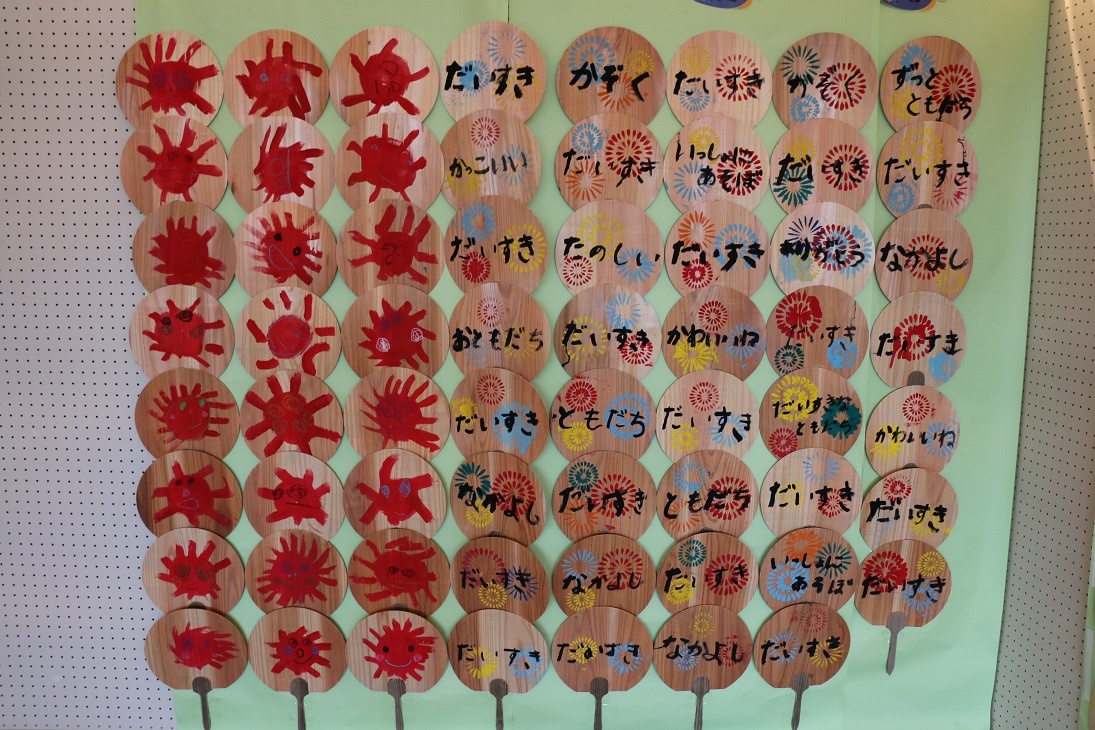 だいすき
かぞく
だいすき
かぞく
ずっと
ともだち
かっこいい
だいすき
いっしょに
あそぼ
だいすき
だいすき
だいすき
たのしい
だいすき
ありがとう
なかよし
おともだち
だいすき
かわいいね
だいすき
だいすき
だいすき
ともだち
だいすき
だいすき
ともだち
かわいいね
なかよし
だいすき
ともだち
だいすき
だいすき
だいすき
なかよし
だいすき
いっしょに
あそぼ
だいすき
だいすき
だいすき
なかよし
だいすき